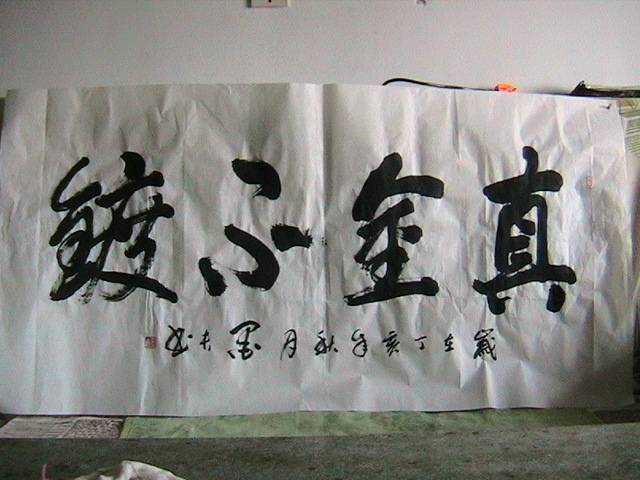 真金不镀
岁在丁亥年秋月墨夫书